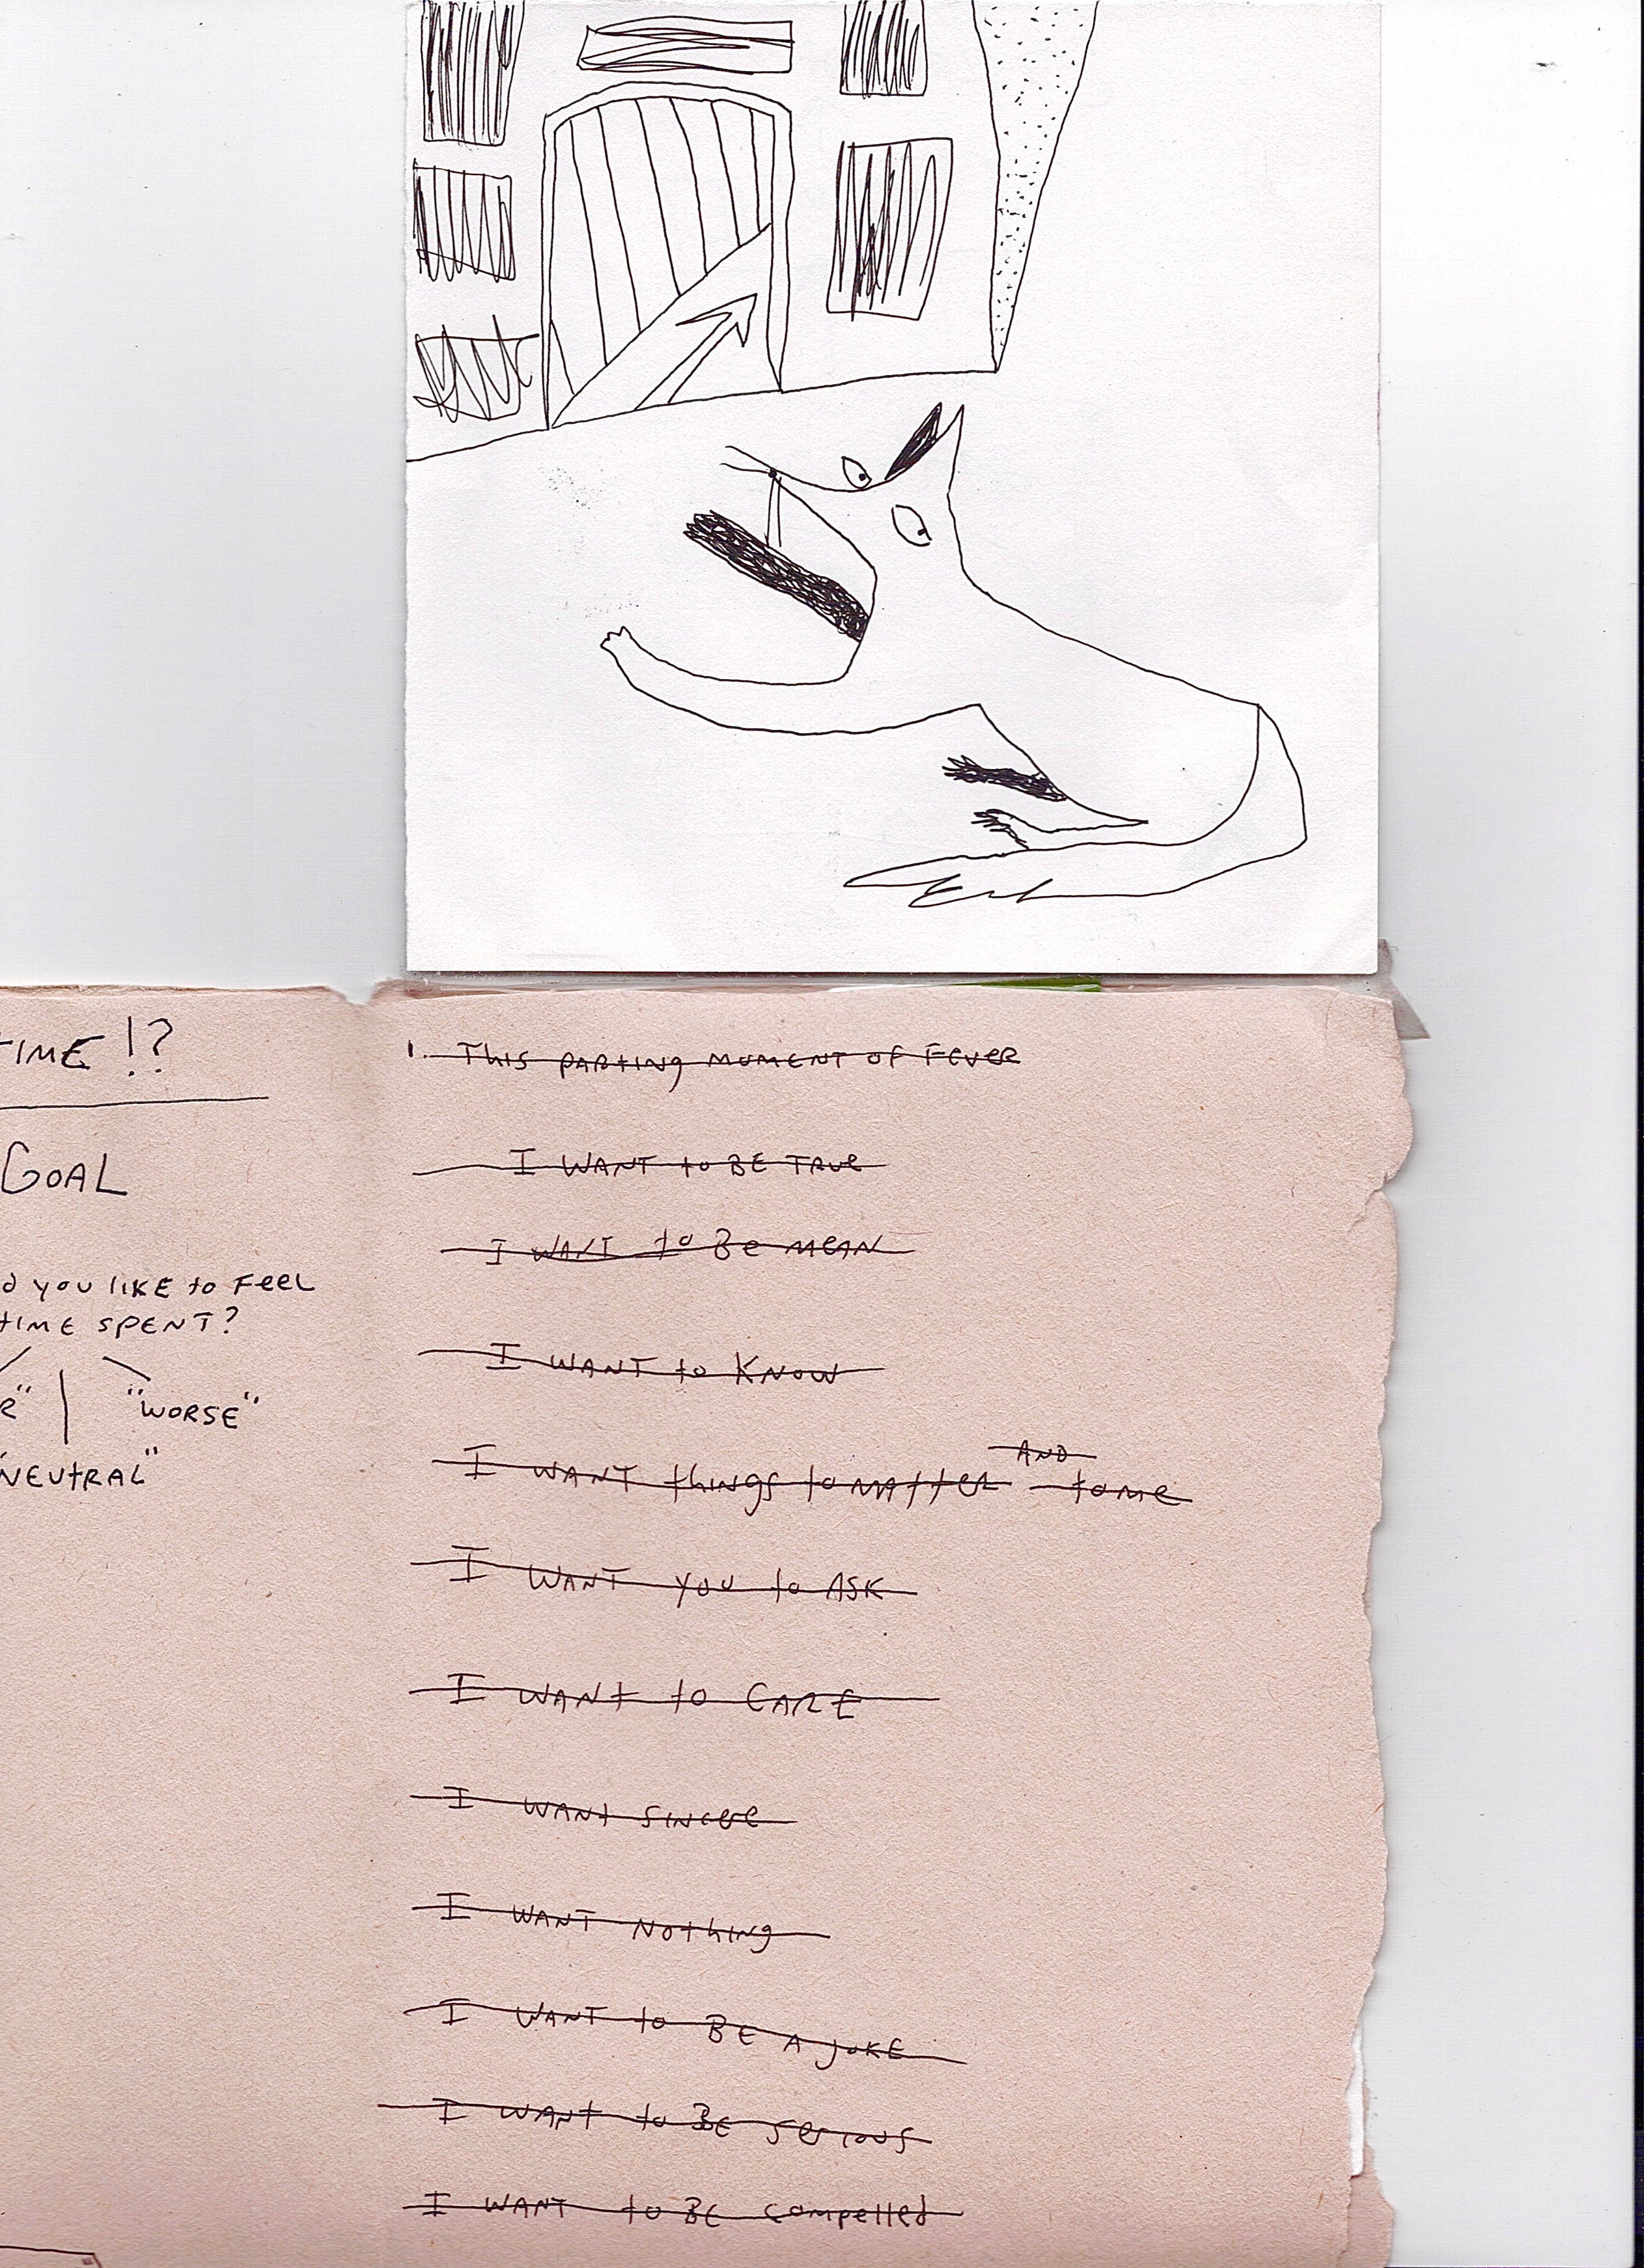 TIME!?
GOAL
d you like to feel
time spent?
R" "WORSE"
"NEUtRAL"
1. This parting moment of fever
I want to be true
I want to be mean
I want to know
I want things to matter and to me
I want you to ask
I want to care
I want sincere
I want nothing
I want to be a joke
I want to be serious
I want to be compelled